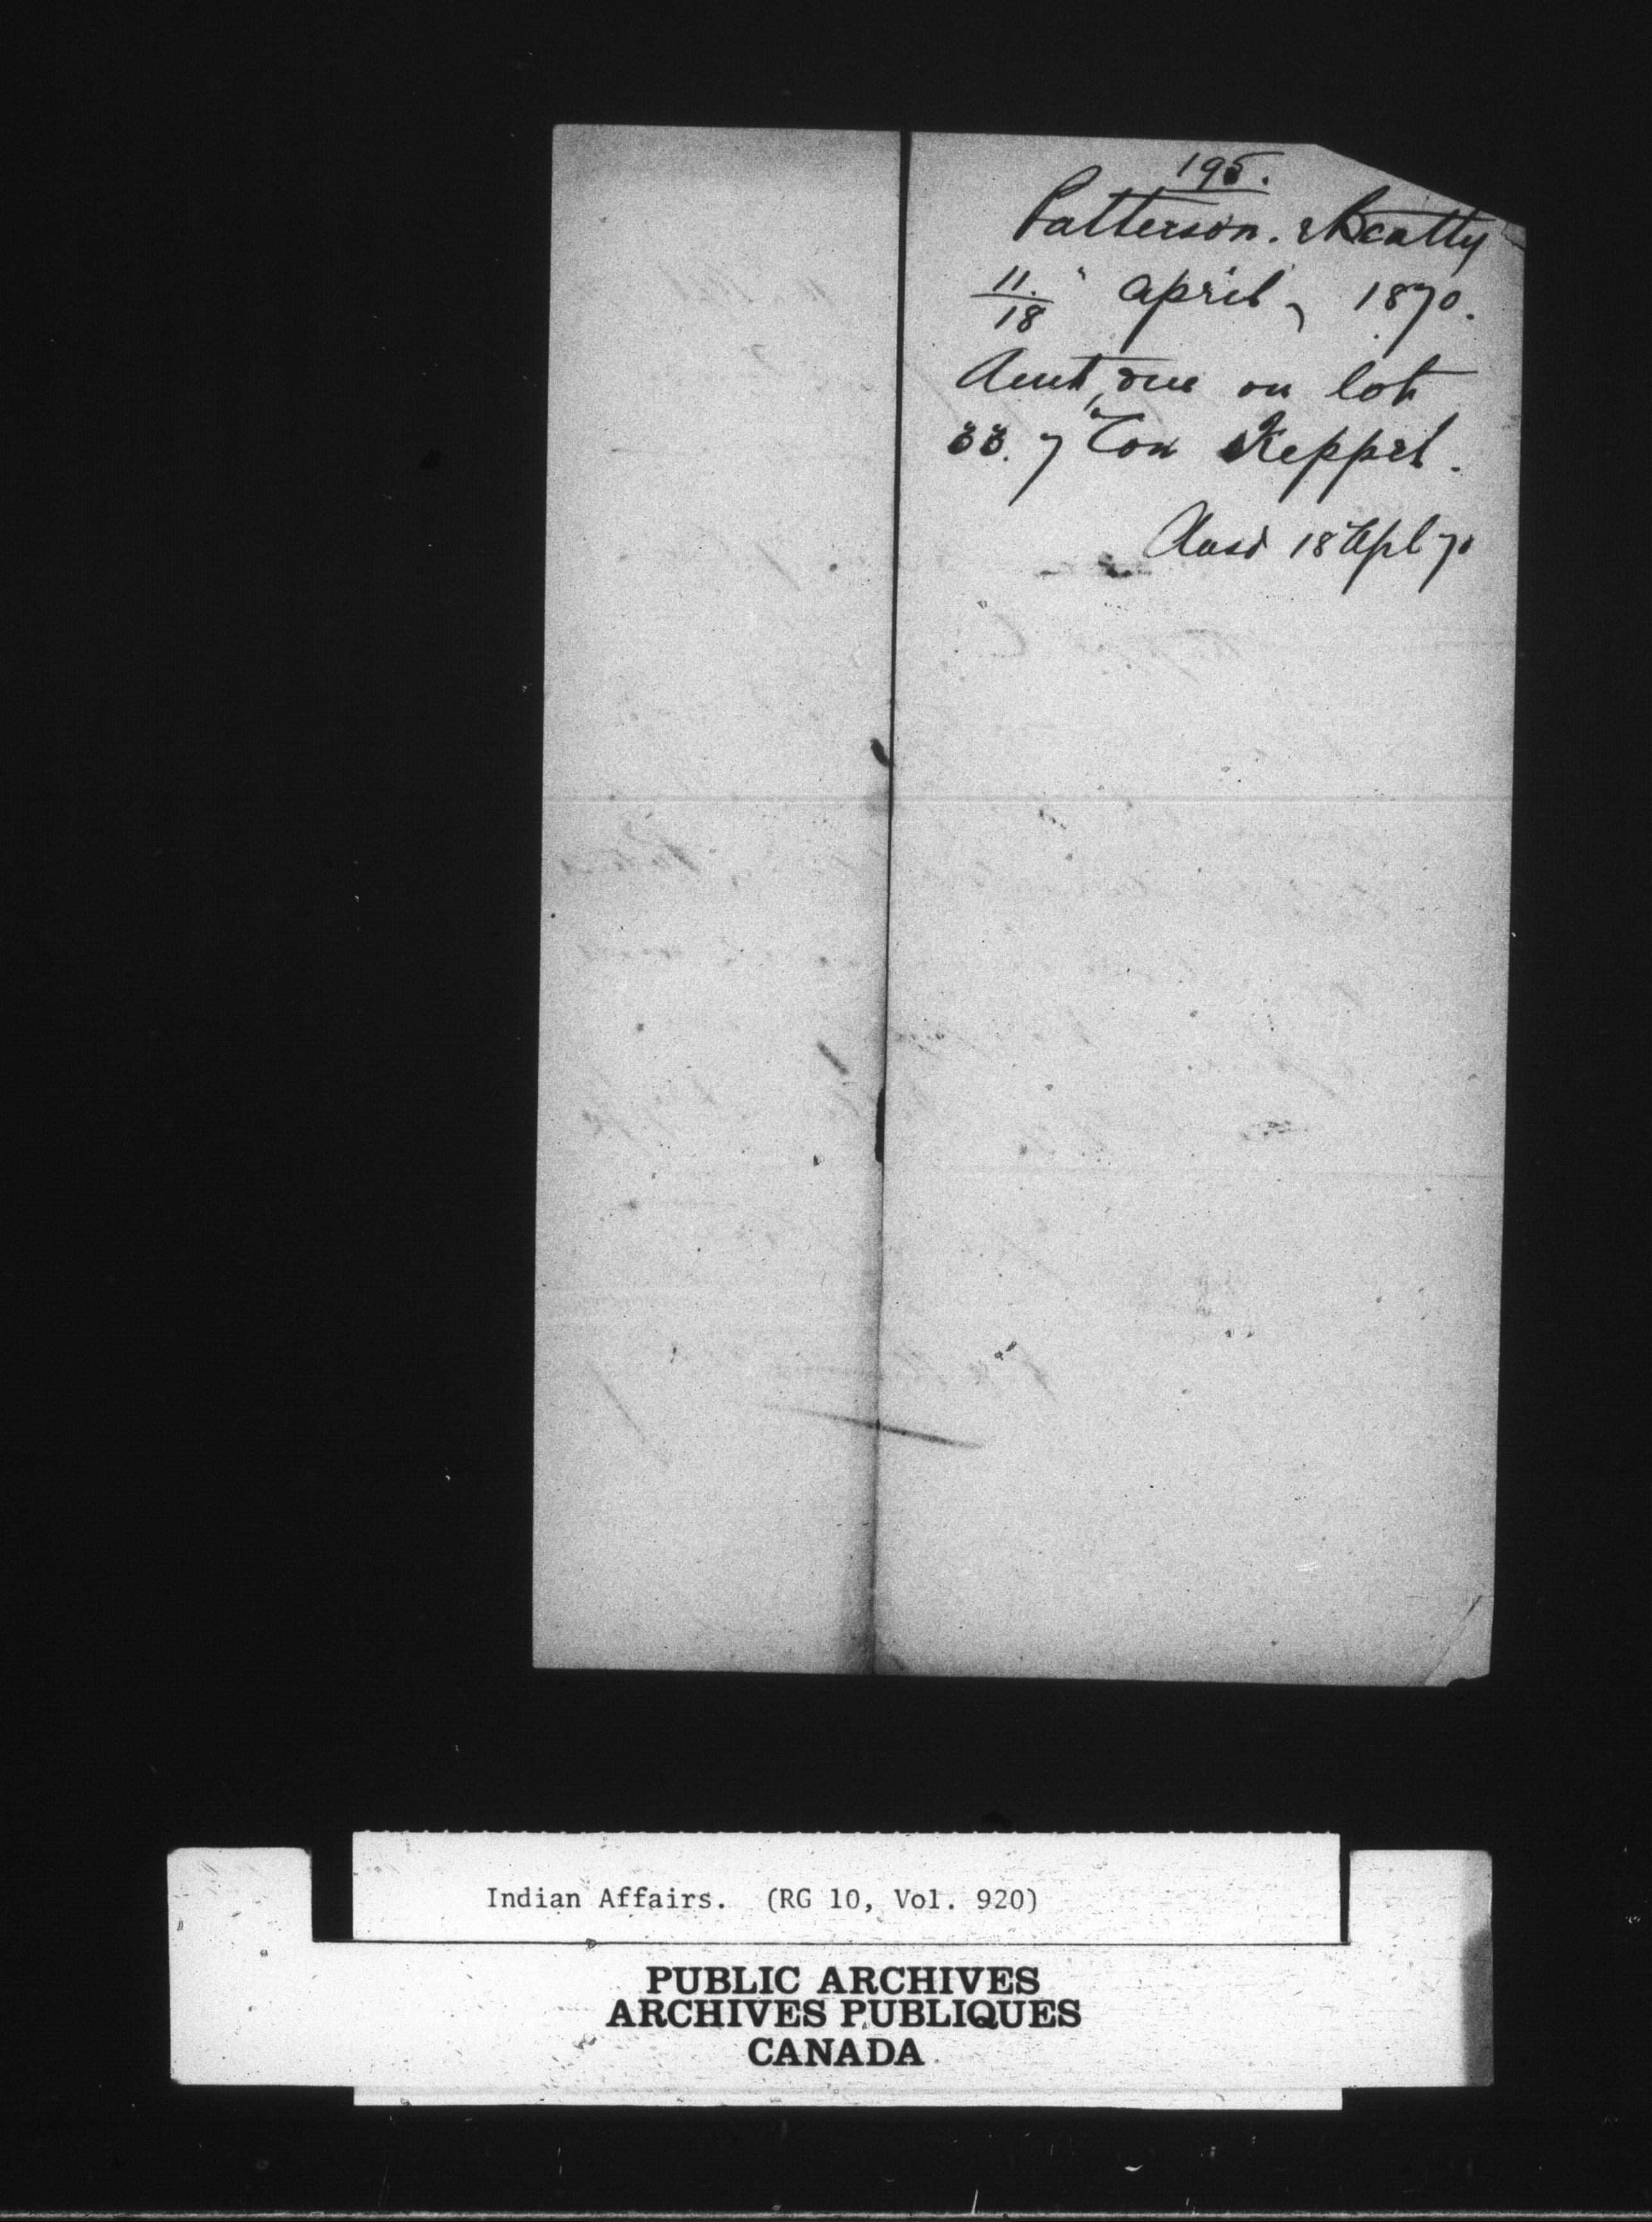 195.
Patterson. & Beatty
11./18 April, 1870.
Amt, due on lot
33. 7 Con Keppel.
Ansd 18 Apl 70
Indian Affairs. (RG 10, Vol. 920)
PUBLIC ARCHIVES
ARCHIVES PUBLIQUES
CANADA